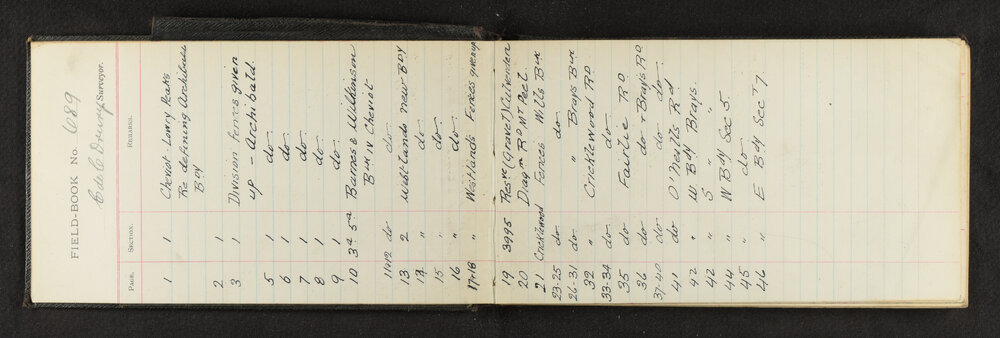 FIELD-BOOK No. 689
C de C Drury Surveyor.
PAGE. SECTION. REMARKS.
1 1 Cheviot Lowry Peaks
Re defining Archibalds
Bdy
2 1
3 1 Division Fences given
up - Archibald.
5 1 do
6 1 do
7 1 do
8 1 do
9 1 do
10 3a 5a Barnes & Wilkinson
Bdy in Cheviot
11&12 do do
13 2 Westlands new Bdy
14 " do
15 " do
16 " do
17&18 " Westlands Fences given up
19 3995 Resve (Gravel) Culverden
20 Diagm Rd Mt Peel
21 Cricklewood Fences Wills Bdy
23-25 do do
26-31 do " Brays Bdy
32 " Cricklewood Rd
33-34 do do
35 do Fairlie Rd
36 do do & Brays Rd
37-40 do do do
41 do O'Neills Rd
42 " W Bdy Brays.
42 " S " "
44 " W Bdy Sec 5.
45 " do
46 " E Bdy Sec 7.